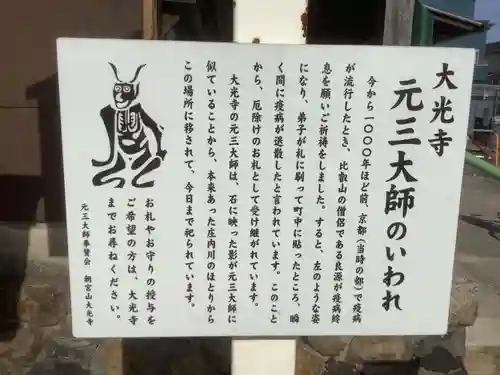 大光寺
元三大師のいわれ
今から一〇〇〇年ほど前、京都（当時の都）で疫病
が流行したとき、比叡山の僧侶である良源が疫病終
息を願いご祈祷をしました。すると、左のような姿
になり、弟子が札に刷って町中に貼ったところ、瞬
く間に疫病が退散したと言われています。このこと
から、厄除けのお札として受け継がれています。
大光寺の元三大師は、石に映った影が元三大師に
似ていることから、本来あった庄内川のほとりから
この場所に移されて、今日まで祀られています。
お札やお守りの授与を
ご希望の方は、大光寺
までお尋ねください。
元三大師奉賛会　朝宮山大光寺